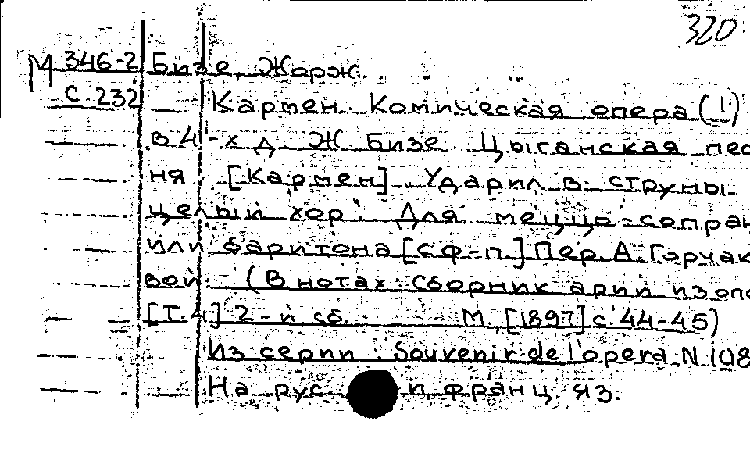 320
М 346-2 Бизе, Жорж.
С. 232 Кармен. Комическая опера (!)
в 4-х д. Ж. Бизе. Цыганская пес
ня [Кармен] "Ударил в струны
целый хор". Для меццо-сопран
или баритона [с ф-п.] Пер. А. Горчак
вой. - (В нотах: Сборник арий из оп
[Т. 4] 2-й сб. М., [1897] с. 44-45)
Из серии: Souvenir de l'opera. N 108
На рус. и франц. яз.